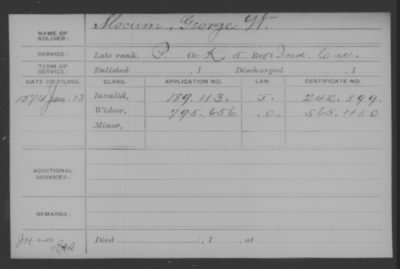 NAME OF SOLDIER: Slocum, George W.
SERVICE: Late rank, P. Co K, 5 Reg't Ind. Cav.
TERM OF SERVICE: Enlisted , 1 Discharged , 1
DATE OF FILING. CLASS. APPLICATION NO. LAW. CERTIFICATE NO.
1874 Jan. 13 Invalid, 189.113. 242.899.
Widow, 795.656 565.450
Minor,
ADDITIONAL SERVICES:
REMARKS:
Died , 1 , at